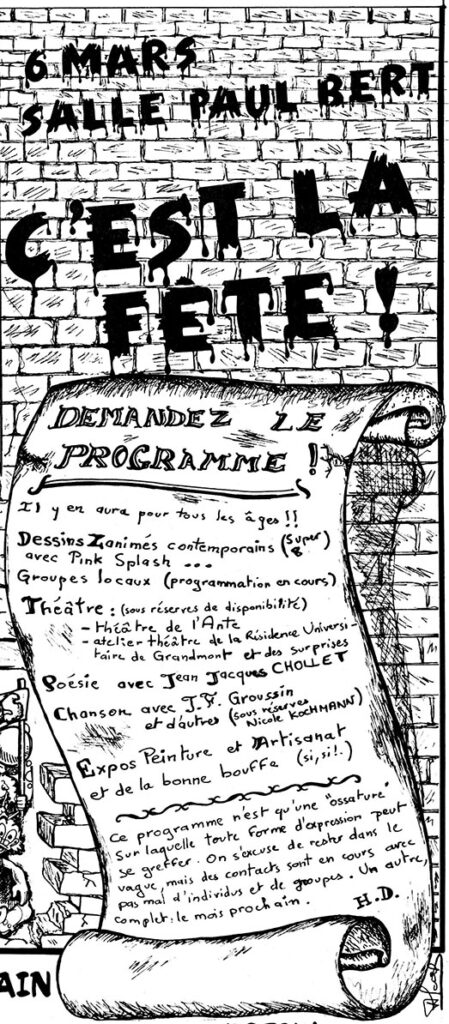 6 MARS
SALLE PAUL BERT
C'EST LA
FÊTE !
DEMANDEZ LE
PROGRAMME !
Il y en aura pour tous les âges !!
Dessins Zanimés contemporains (Super 8)
avec Pink Splash ...
Groupes locaux (programmation en cours)
Théâtre : (sous réserves de disponibilité)
- théâtre de l'Ante
- atelier-théâtre de la Résidence Universi-
taire de Grandmont et des surprises
Poésie avec Jean Jacques CHOLLET
Chanson avec J.F. Groussin
et d'autres (sous réserves
Nicole KOCHMANN)
Expos Peinture et Artisanat
et de la bonne bouffe (si, si!.)
Ce programme n'est qu'une "ossature"
sur laquelle toute forme d'expression peut
se greffer. On s'excuse de rester dans le
vague, mais des contacts sont en cours avec
pas mal d'individus et de groupes. Un autre,
complet: le mois prochain.
H.D.
AIN